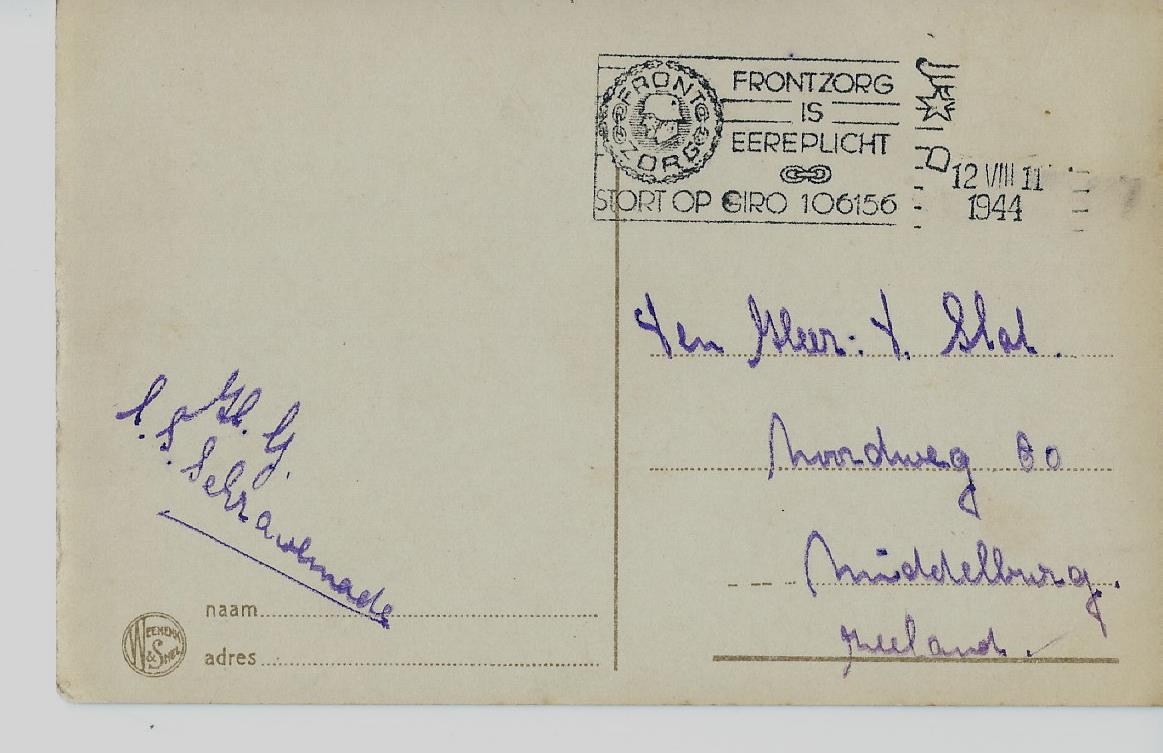 FRONT ZORG
FRONTZORG
IS
EEREPLICHT
STORT OP GIRO 106156
12 VIII 11
1944
Den Heer: J. Slot.
Noordweg 60
Middelburg.
Zeeland.
H. G.
naam
adres
WEENENK & SNEL